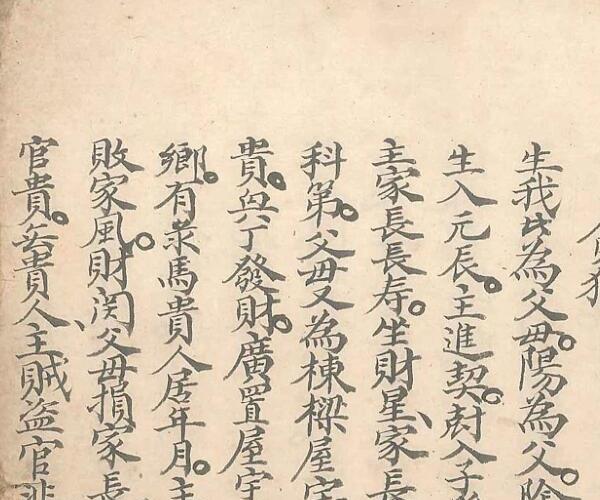 生我比為父母。陽為父。陰
生入元辰。主進契。財入子
主家長長寿。坐財星、家長
科第。父母又為棟樑屋宇
貴。與丁發財。廣置屋宇
鄉。有录馬貴人居年月。主
敗家風。財闵父母損家長
官貴。無貴人、主賊盗官非